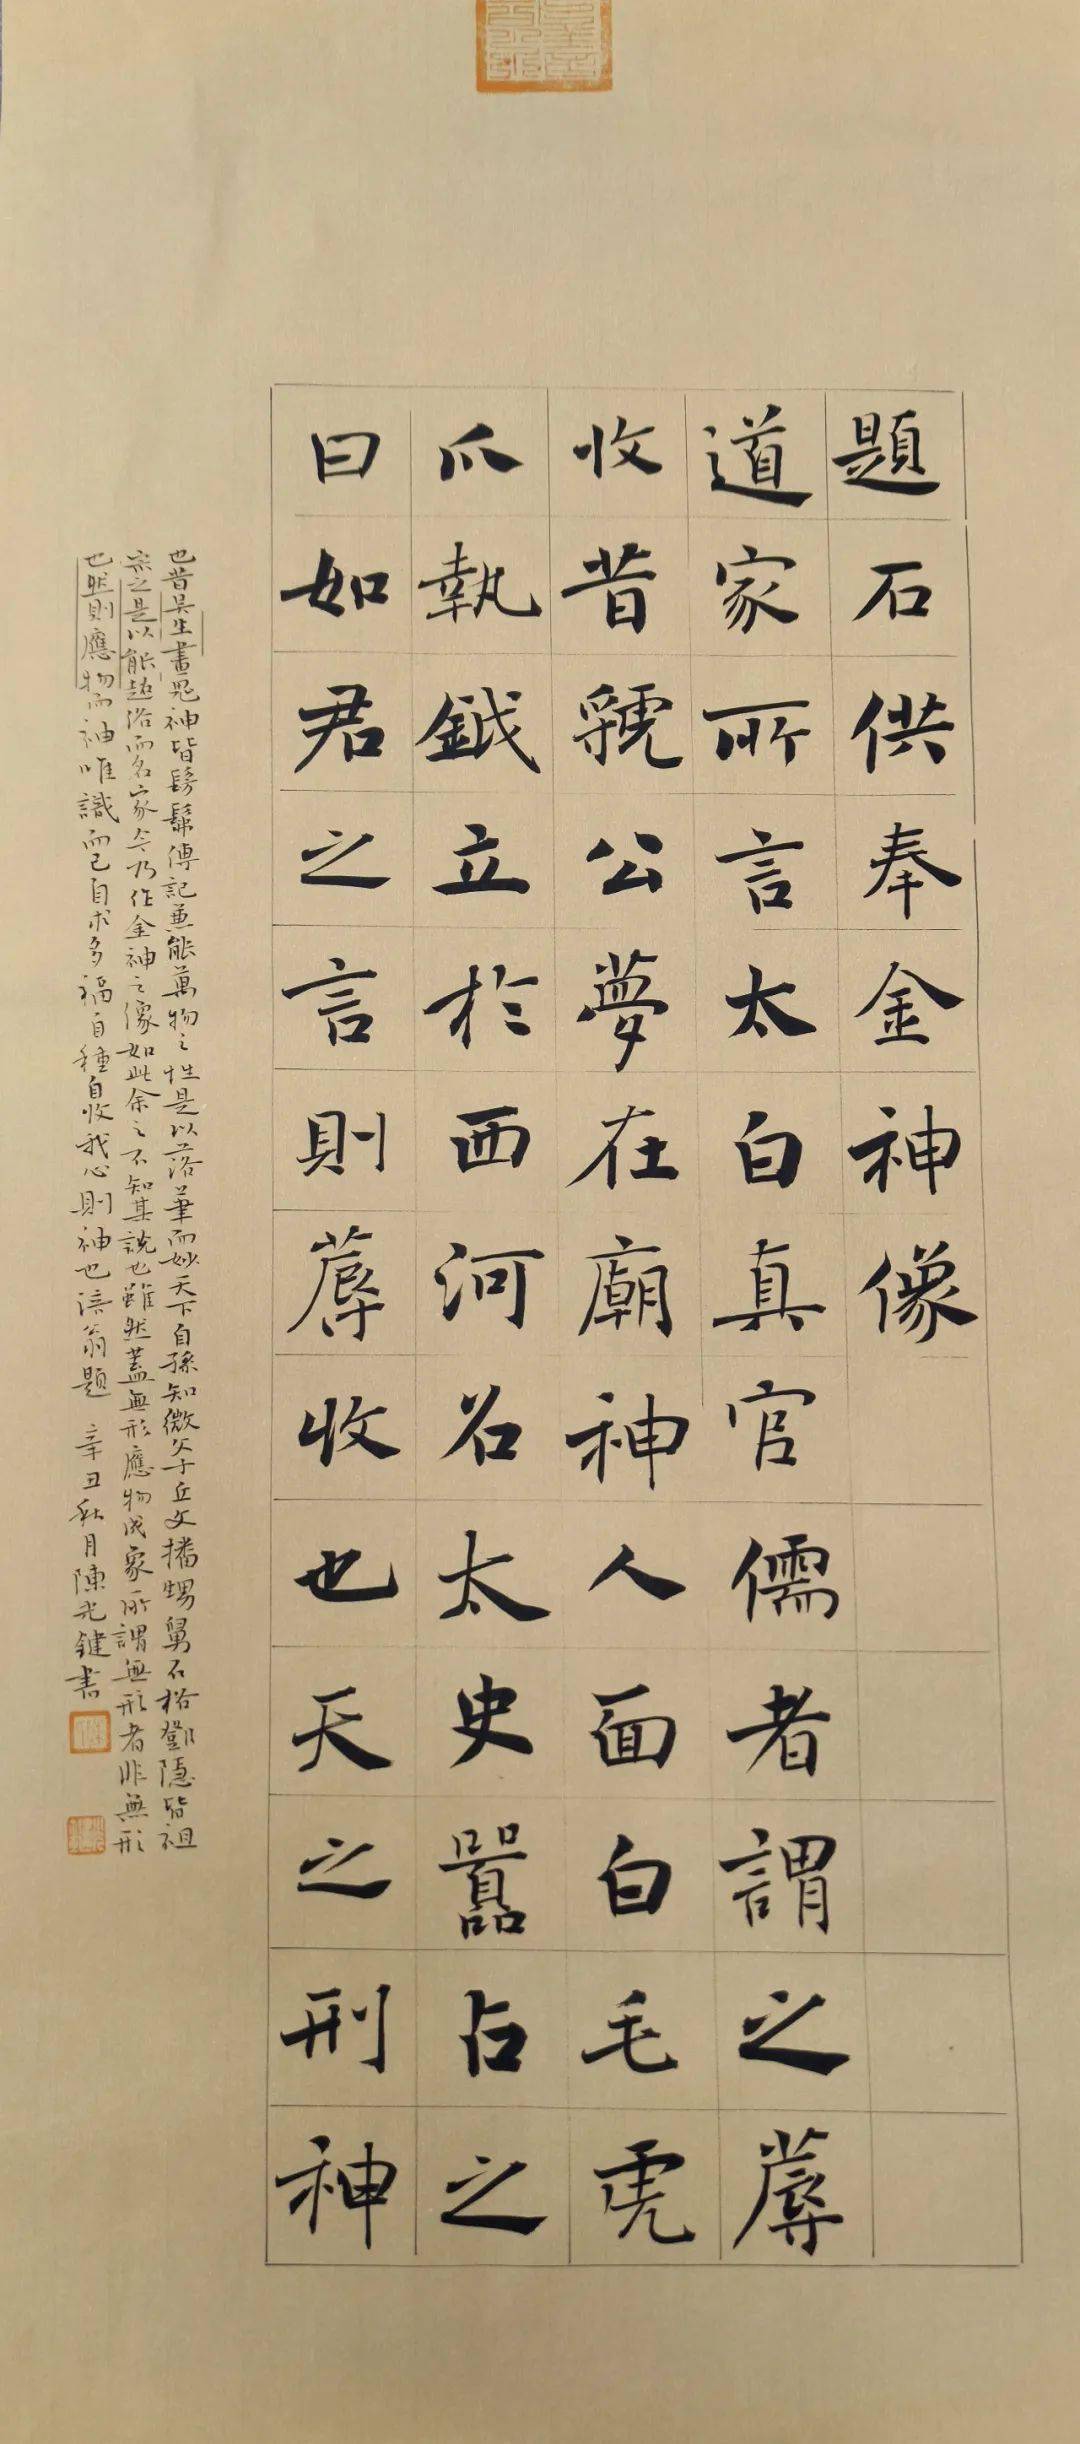 題石供奉金神像
道家所言太白真官儒者謂之蓐
收昔虢公夢在廟神人面白毛虎
爪執鉞立於西河名太史嚚占之
曰如君之言則蓐收也天之刑神
也昔吳生畫鬼神皆髣髴傳記兼能萬物之性是以落筆而妙天下自孫知微父子丘文播甥舅石恪鄧隱皆祖
宗之是以能超俗而名家今乃作金神之像如此余之不知其說也雖然蓋無形應物成象所謂無形者非無形
也然則應物而神唯識而已自求多福自種自收我心則神也涪翁題 辛丑秋月陳光鍵書